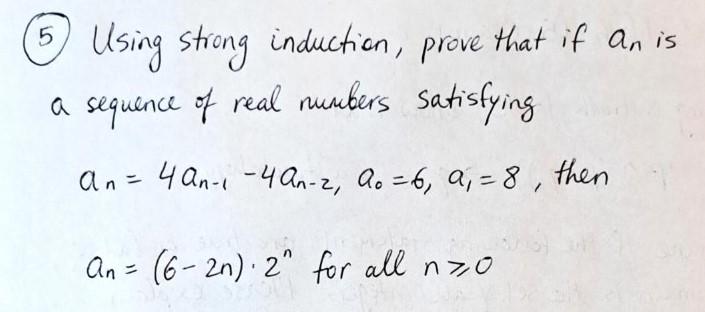 ⑤ Using strong induction, prove that if aₙ is
a sequence of real numbers satisfying
aₙ = 4aₙ₋₁ - 4aₙ₋₂, a₀ = 6, a₁ = 8, then
aₙ = (6 - 2n) · 2ⁿ for all n ≥ 0